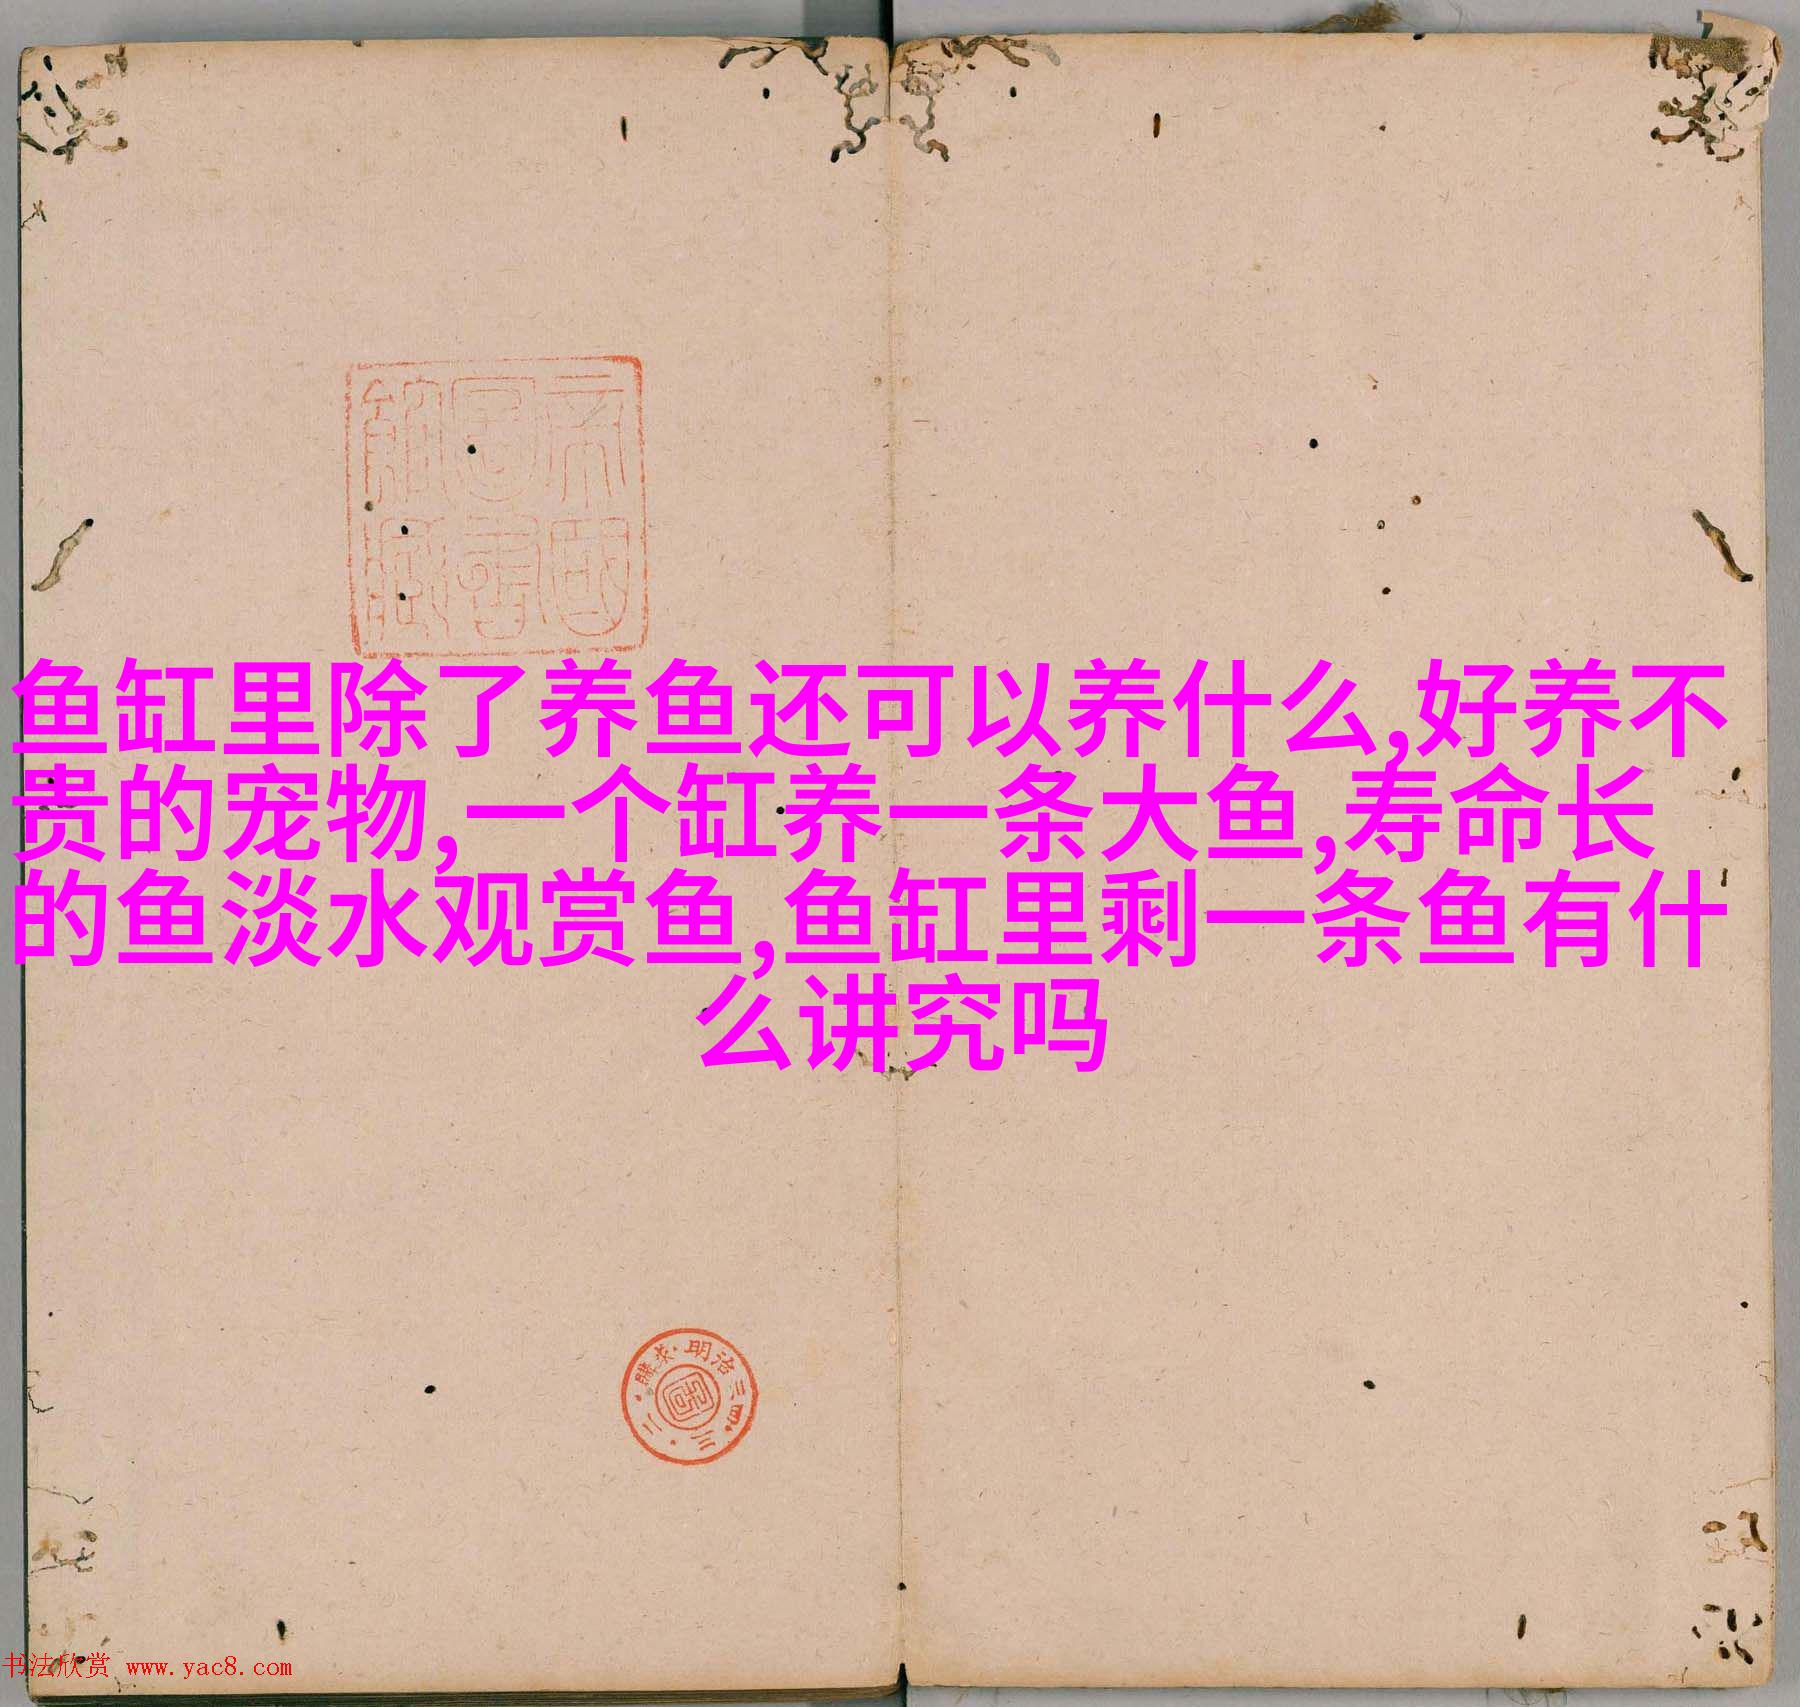 帝國圖書館藏
鱼缸里除了养鱼还可以养什么,好养不
贵的宠物,一个缸养一条大鱼,寿命长
的鱼淡水观赏鱼,鱼缸里剩一条鱼有什
么讲究吗
明治三四·三·二二·購求·
书法欣赏 www.yac8.com